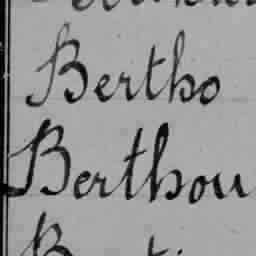 Bertho
Berthou